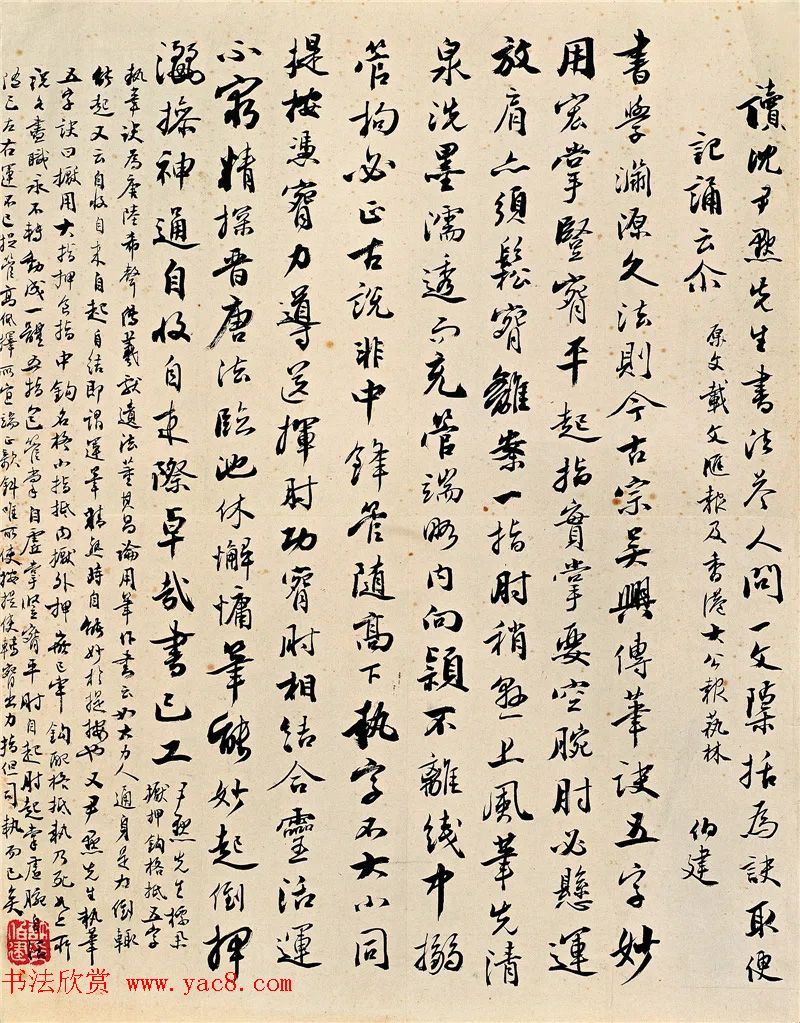 读沈尹默先生书法答人问一文檃括为诀取便
記誦云尔 原文載文匯報及香港大公報藝林 伯建
書學淵源久法則今古宗吳興傳筆訣五字妙
用宏掌豎窅平起指實掌要空腕肘必懸運
放肩亦須鬆窅離案一指肘稍懸上風筆先清
泉洗墨濡透而充管端略内向穎不離线中搦
管拘必正古説非中鋒管随髙下執字不大小同
提按憑窅力導送揮肘功窅肘相結合靈活運
不窮精探晋唐法臨池休懈慵筆能妙起倒押
操神通自收自束際卓哉書已工 尹默先生標舉
擫押鈎格抵五字
執筆訣為唐陸希聲傳羲獻遺法董其昌論用筆作書云如大力人通身是力倒輒
能起又云自收自束自起自結即謂運筆精熟時自能妙於提按也又尹默先生執筆
五字訣曰擫用大指押食指中鈎名格小指抵内擫外押無已牢鈎配格抵執乃死
職永不轉動成一體五指包管掌自虛掌豎窅平肘自起肘起掌虛腕自活
左右運不已捉管髙低擇所宜端正欹斜唯所使按提使轉窅出力指但司執而已矣
书法欣赏 www.yac8.com